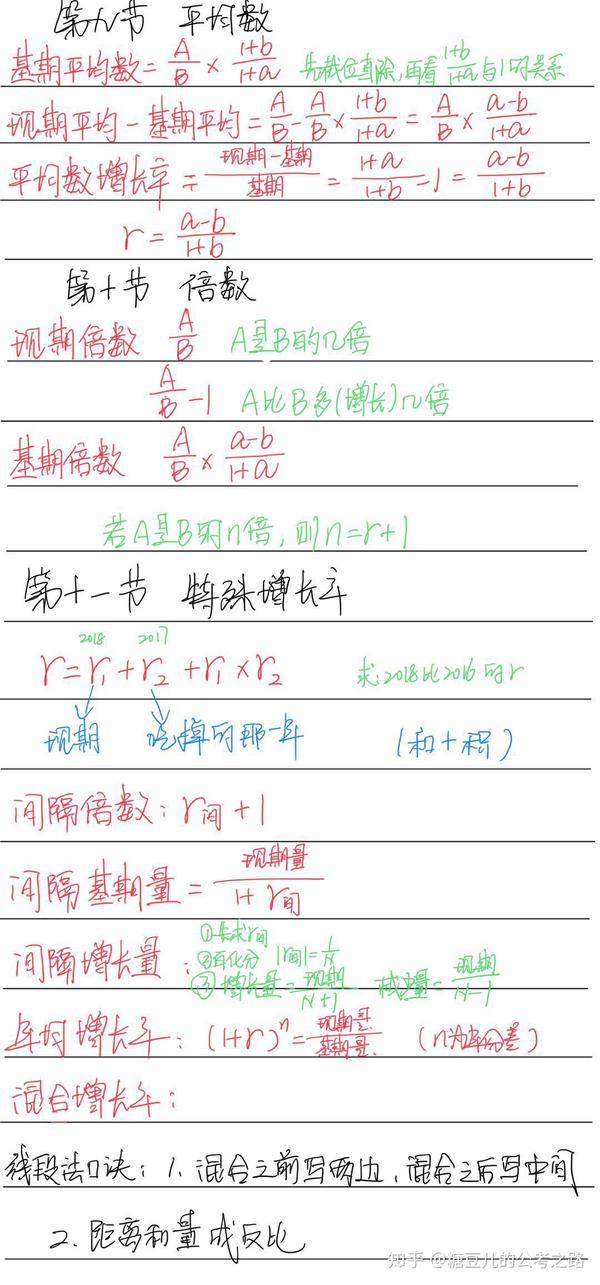 第九节 平均数
基期平均数 = A/B × (1+b)/(1+a) 先截位直除,再看 (1+b)/(1+a) 与1的关系
现期平均 - 基期平均 = A/B - A/B × (1+b)/(1+a) = A/B × (a-b)/(1+a)
平均数增长率 = (现期-基期)/基期 = (1+a)/(1+b) - 1 = (a-b)/(1+b)
r = (a-b)/(1+b)
第十节 倍数
现期倍数 A/B A是B的几倍
A/B - 1 A比B多(增长)几倍
基期倍数 A/B × (a-b)/(1+a)
若A是B的n倍,则n=r+1
第十一节 特殊增长率
2018 2017
r = r₁ + r₂ + r₁ × r₂ 求:2018比2016的r
现期 吃掉的那一年 (和+积)
间隔倍数: r间 + 1
间隔基期量 = 现期量/(1+r间)
间隔增长量: ①先求r间
②百化分 |r间| = 1/N
③增长量 = 现期/(N+1) 减量 = 现期/(N-1)
年均增长率: (1+r)ⁿ = 现期量/基期量 (n为年份差)
混合增长率:
线段法口诀: 1. 混合之前写两边、混合之后写中间
2. 距离和量成反比
知乎 @糖豆儿的公考之路